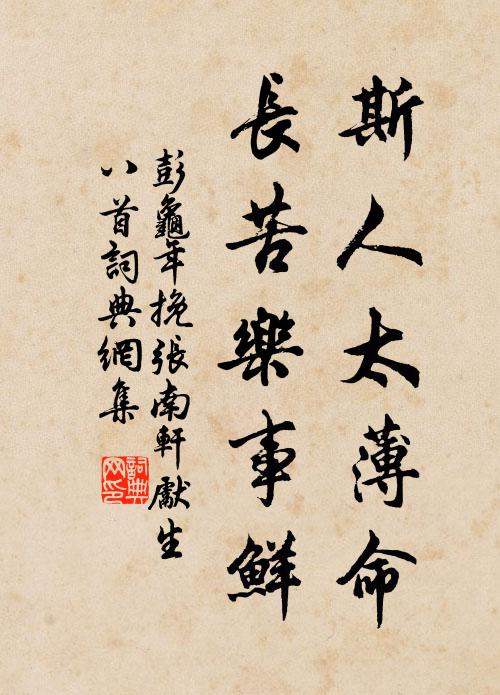 斯人太薄命
長苦樂事鮮
彭龜年挽張南軒獻生
八首詞典網集
詞典网印